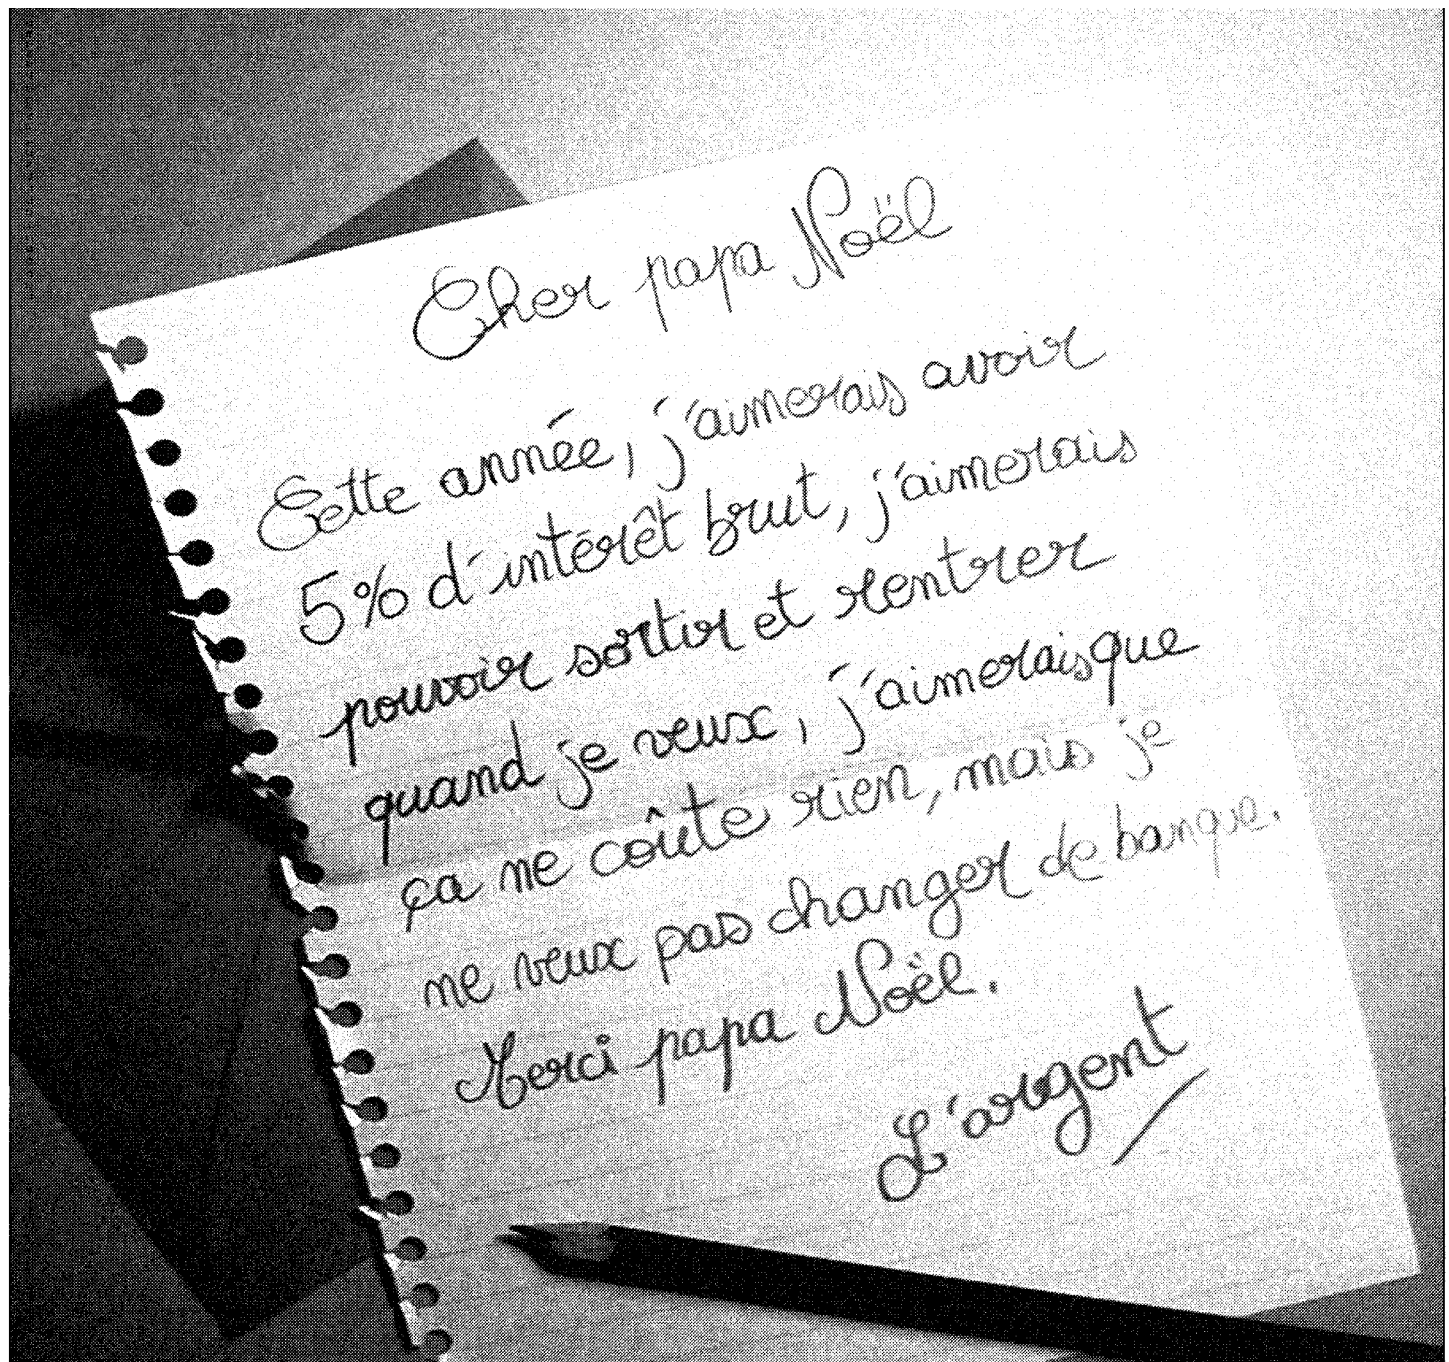 Cher papa Noël
Cette année, j'aimerais avoir
5% d'intérêt brut, j'aimerais
pouvoir sortir et rentrer
quand je veux, j'aimerais que
ça ne coûte rien, mais je
ne veux pas changer de banque.
Merci papa Noël.
L'argent